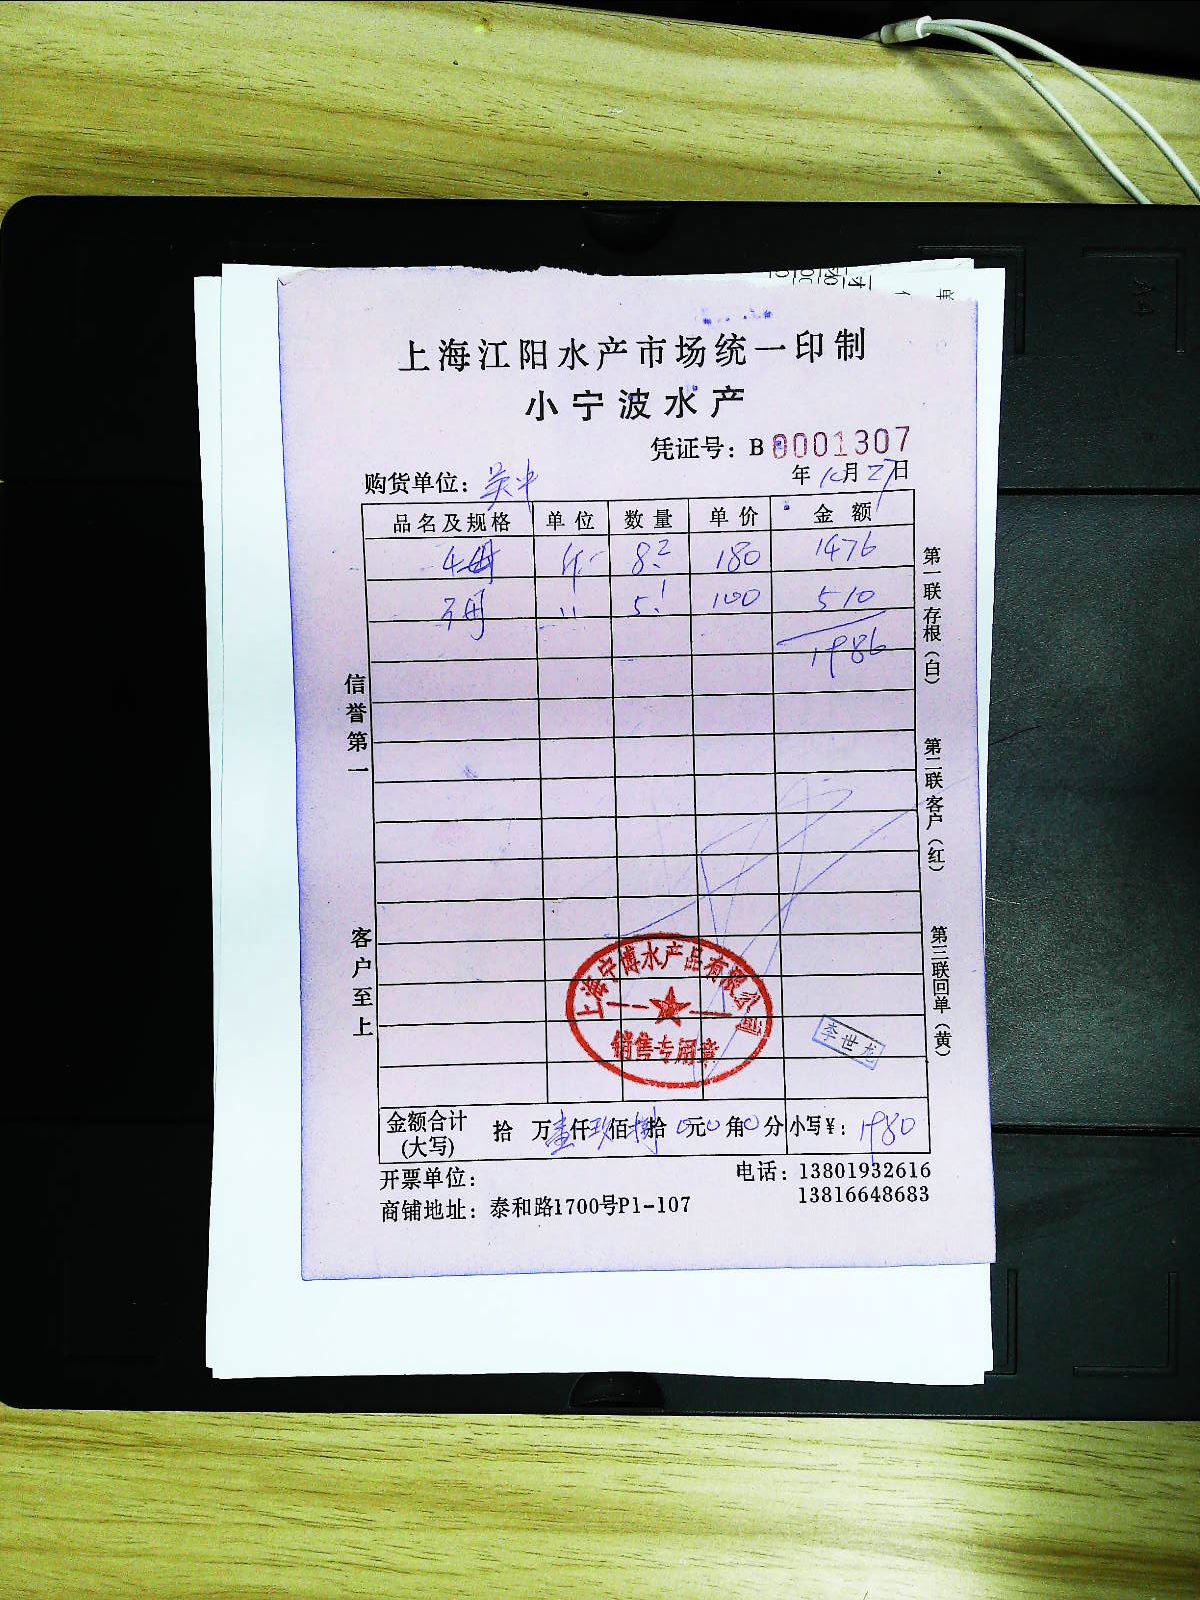 上海江阳水产市场统一印制
小宁波水产
凭证号：B 0001307
购货单位： 年 月 27日
品名及规格 单位 数量 单价 金额
4母 斤 8.2 180 1476
3母 〃 5.1 100 510
1986
信誉第一
客户至上
第一联存根（白）
第二联客户（红）
第三联回单（黄）
上海宁博水产品有限公司
销售专用章
李世龙
金额合计(大写) 拾 万壹仟玖佰捌拾0元0角0分 小写¥：1980
开票单位： 电话：13801932616
13816648683
商铺地址：泰和路1700号P1-107